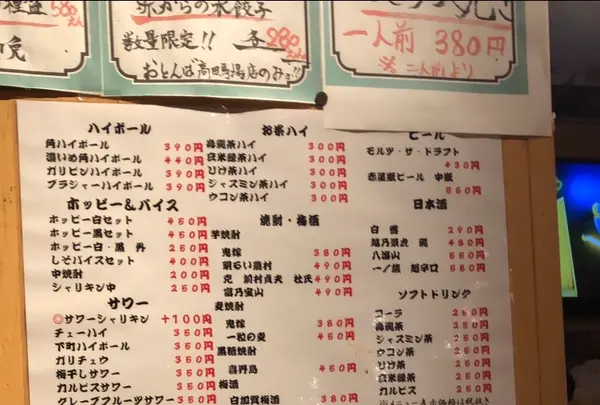 580
晩
赤からの水餃子
数量限定!! 各280
おとんば高田馬場店のみ!!
一人前 380円
※二人前より
ハイボール
角ハイボール 390円
濃いめ角ハイボール 440円
ガリピンハイボール 390円
ブラジャーハイボール 390円
ホッピー&バイス
ホッピー白セット 450円
ホッピー黒セット 450円
ホッピー白・黒 丹 250円
しそバイスセット 400円
中焼酎 200円
シャリキン中 250円
サワー
◎サワーシャリキン +100円
チューハイ 350円
下町ハイボール 350円
ガリチュウ 350円
梅干しサワー 350円
カルピスサワー 350円
グレープフルーツサワー 350円
お茶ハイ
烏龍茶ハイ 300円
玄米緑茶ハイ 300円
ひけ茶ハイ 300円
ジャスミン茶ハイ 300円
ウコン茶ハイ 300円
焼酎・梅酒
芋焼酎
鬼嫁 380円
明るい農村 490円
克 前村貞夫 杜氏 490円
富乃宝山 490円
麦焼酎
鬼嫁 380円
一粒の麦 450円
黒糖焼酎
喜界島 450円
梅酒
白加賀梅酒 380円
ビール
モルツ・ザ・ドラフト
430円
赤星瓶ビール 中瓶
550円
日本酒
白雪 290円
越乃景虎 龍 480円
八海山 550円
一ノ蔵 超辛口 550円
ソフトドリンク
コーラ 250円
烏龍茶 250円
ジャスミン茶 250円
ウコン茶 250円
ひけ茶 250円
玄米緑茶 250円
カルピス 250円
※メニュー表示価格は税抜き